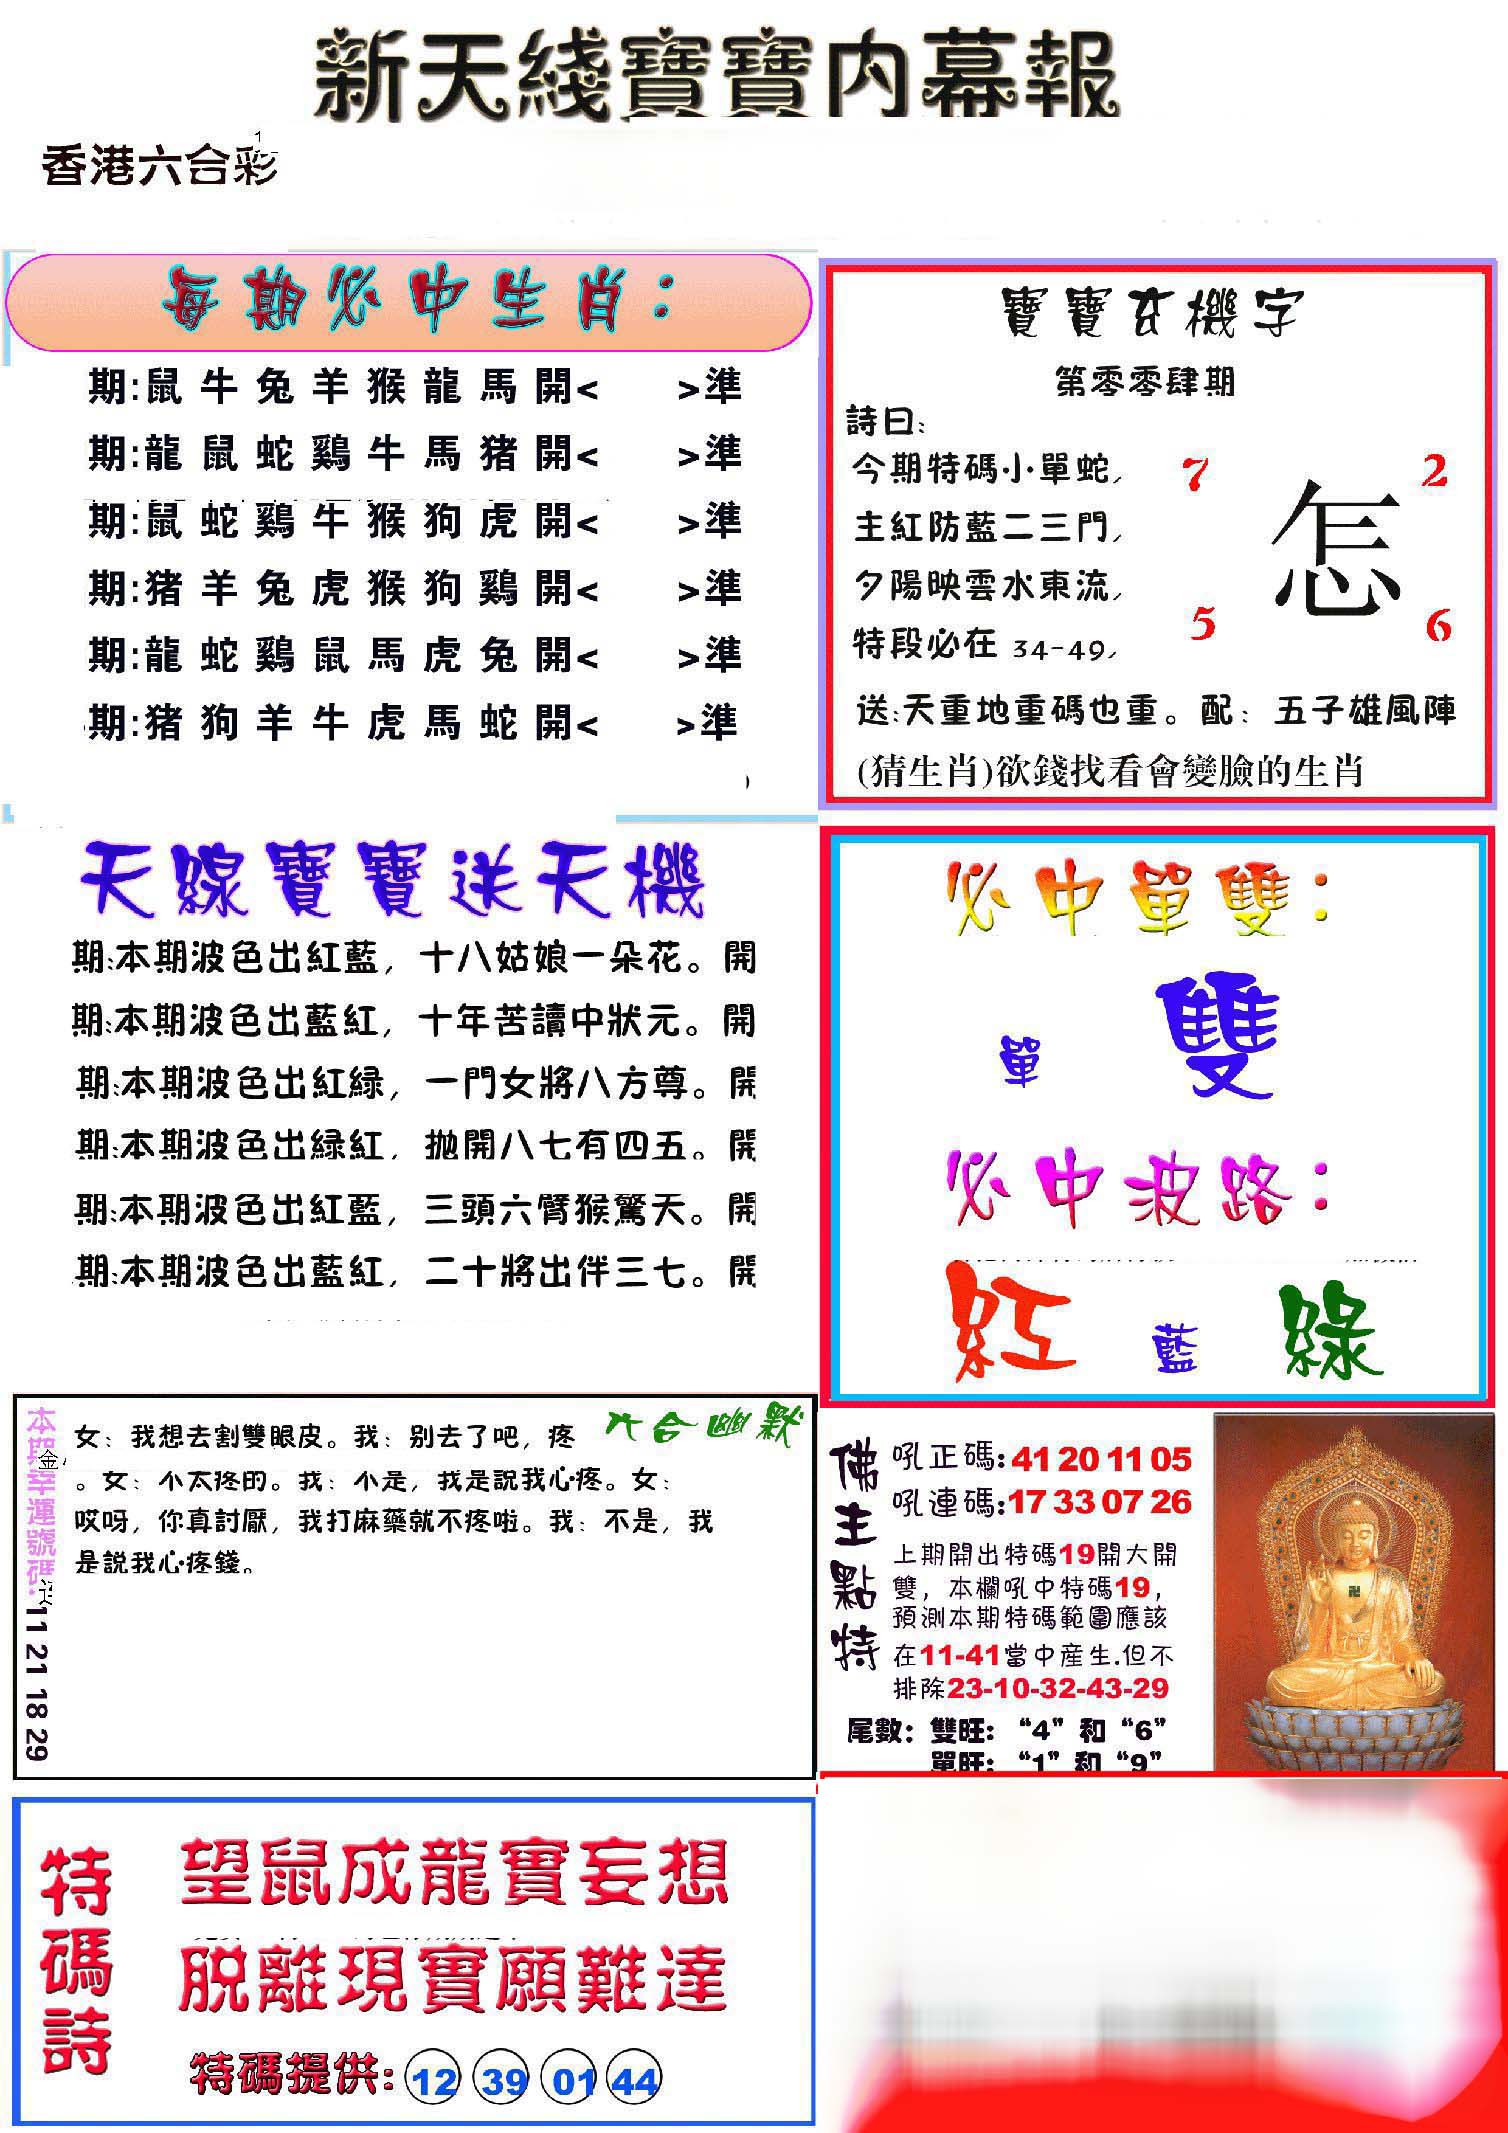 新天綫寶寶内幕報
香港六合彩
每期必中生肖：
期:鼠牛兔羊猴龍馬開< >準
期:龍鼠蛇鷄牛馬猪開< >準
期:鼠蛇鷄牛猴狗虎開< >準
期:猪羊兔虎猴狗鷄開< >準
期:龍蛇鷄鼠馬虎兔開< >準
期:猪狗羊牛虎馬蛇開< >準
寶寶玄機字
第零零肆期
詩曰:
今期特碼小單蛇,
主紅防藍二三門,
夕陽映雲水東流,
特段必在 34-49,
7 2
怎
5 6
送:天重地重碼也重。配：五子雄風陣
(猜生肖)欲錢找看會變臉的生肖
天線寶寶送天機
期:本期波色出紅藍，十八姑娘一朵花。開
期:本期波色出藍紅，十年苦讀中狀元。開
期:本期波色出紅緑，一門女將八方尊。開
期:本期波色出緑紅，抛開八七有四五。開
期:本期波色出紅藍，三頭六臂猴驚天。開
期:本期波色出藍紅，二十將出伴三七。開
必中單雙：
單 雙
必中波路：
紅 藍 綠
本期幸運號碼:
11 21 18 29
六合幽默
女：我想去割雙眼皮。我：别去了吧，疼
。女：不太疼的。我：不是，我是說我心疼。女：
哎呀，你真討厭，我打麻藥就不疼啦。我：不是，我
是説我心疼錢。
佛主點特
吼正碼:41 20 11 05
吼連碼:17 33 07 26
上期開出特碼19開大開
雙，本欄吼中特碼19，
預測本期特碼範圍應該
在11-41當中産生.但不
排除23-10-32-43-29
尾數：雙旺：“4”和“6”
單旺：“1”和“9”
特碼詩
望鼠成龍實妄想
脱離現實願難達
特碼提供: 12 39 01 44